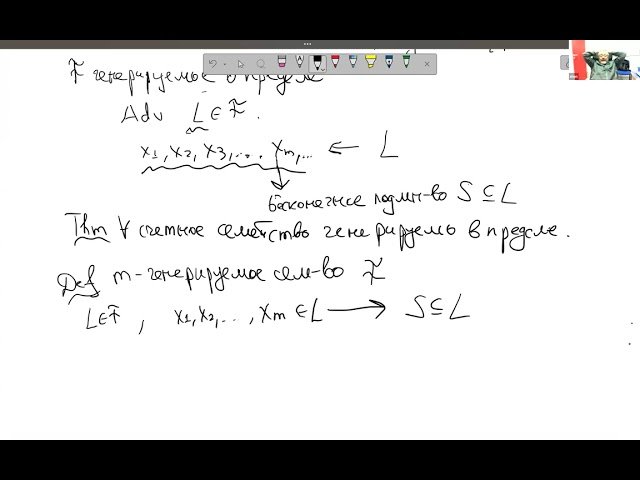 𝓕 генерируемое в пределе
Adv L ∈ 𝓕.
x1, x2, x3, ..., xm, ... ← L
бесконечное подмн-во S ⊆ L
Thm ∀ счетное семейство генерируемо в пределе.
Def m-генерируемое сем-во 𝓕
L∈𝓕, x1, x2, ..., xm ∈ L → S ⊆ L